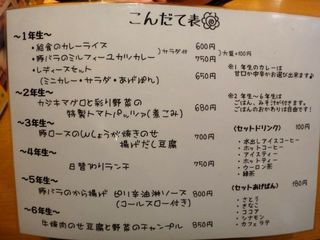 こんだて表
〜1年生〜
・給食のカレーライス 600円
・豚バラのミルフィーユカツカレー 750円
サラダ付
大盛+100円
・レディースセット
(ミニカレー・サラダ・あげぱん) 650円
※1年生のカレーは
甘口か中辛かお選び出来ます♪
〜2年生〜
カジキマグロと彩り野菜の
特製トマトパッツァ(煮こみ) 680円
※2年生〜6年生は
ごはん、みそ汁が付きます。
ごはんのおかわり自由です♪
〜3年生〜
豚ロースのしょうが焼きのせ
揚げだし豆腐 700円
〜4年生〜
日替わりランチ 750円
〜5年生〜
豚バラのから揚げ 四川辛油淋ソース 800円
(コールスロー付き)
〜6年生〜
牛焼肉のせ豆腐と野菜のチャンプル 850円
〈セットドリンク〉 100円
・水出しアイスコーヒー
・ホットコーヒー
・アイスティー
・ホットティー
・ウーロン茶
・緑茶
〈セットあげぱん〉 180円
・さとう
・きなこ
・ココア
・シナモン
・カフェラテ